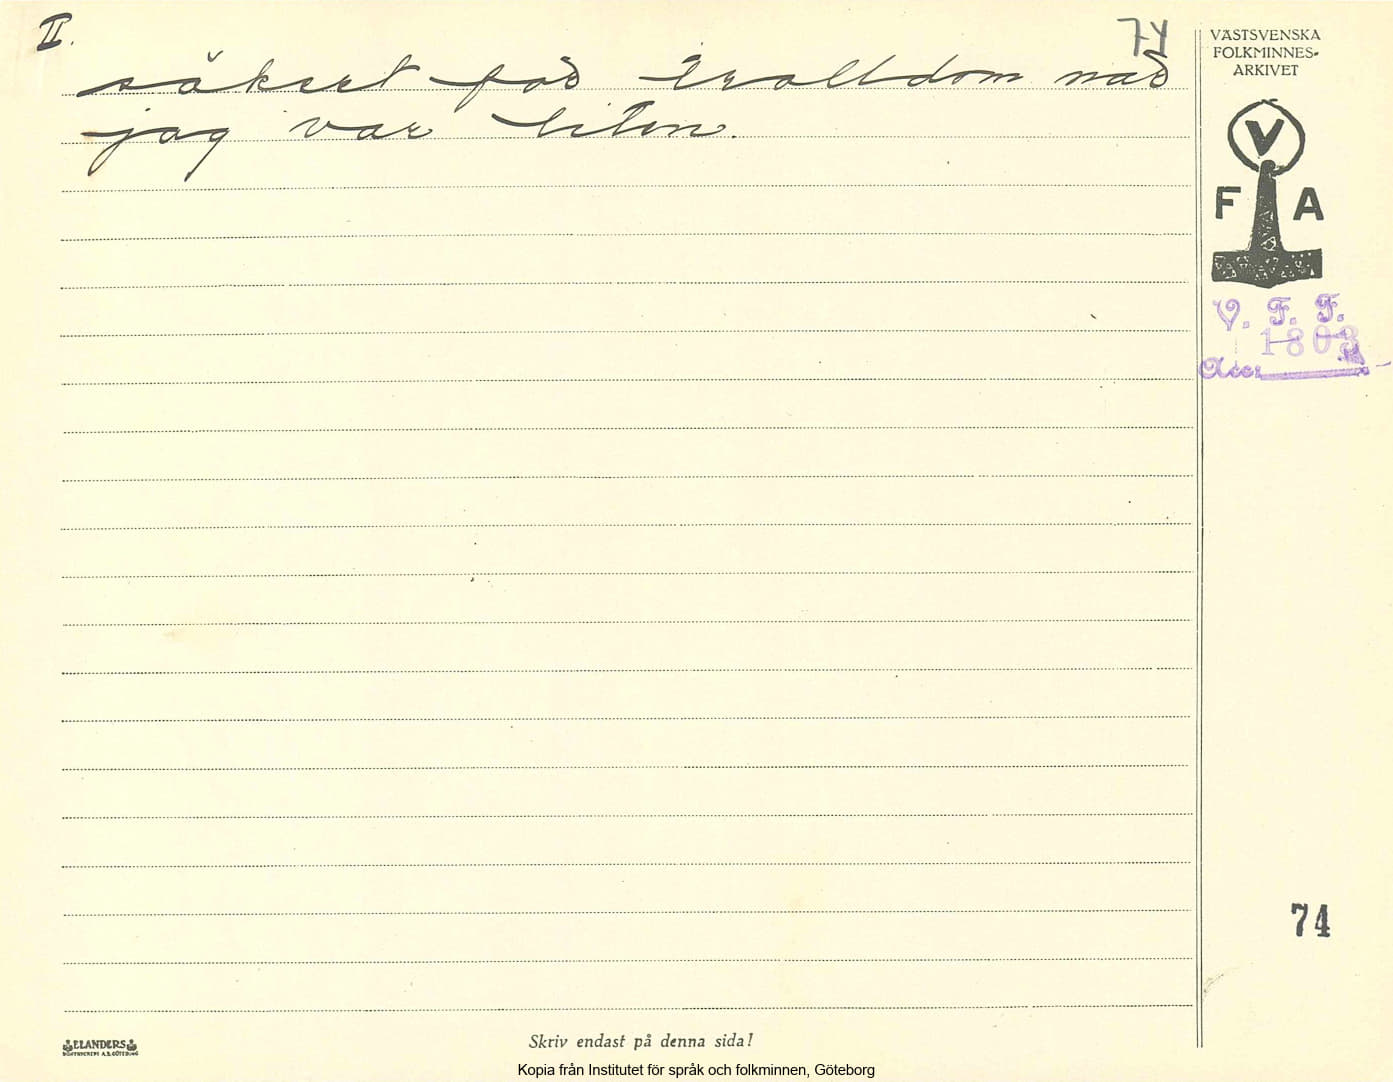 II.
74
säkert för trolldom när
jag var liten.
VÄSTSVENSKA
FOLKMINNES-
ARKIVET
V
F A
V. F. F.
1803
Acc.
74
ELANDERS
BOKTRYCKERI A.B. GÖTEBORG
Skriv endast på denna sida!
Kopia från Institutet för språk och folkminnen, Göteborg